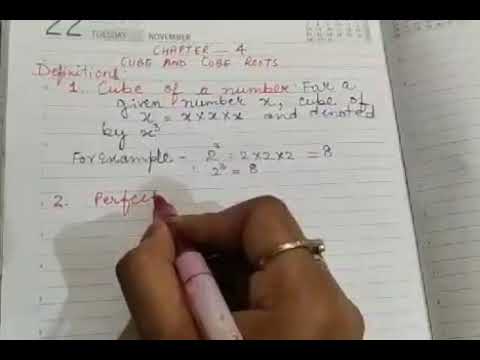 22
TUESDAY
NOVEMBER
CHAPTER - 4
CUBE AND CUBE ROOTS
Definitions :
1. Cube of a number : For a
given number x, cube of
x = x × x × x and denoted
by x³
For example - 2³ = 2 × 2 × 2 = 8
∴ 2³ = 8
2. Perfect